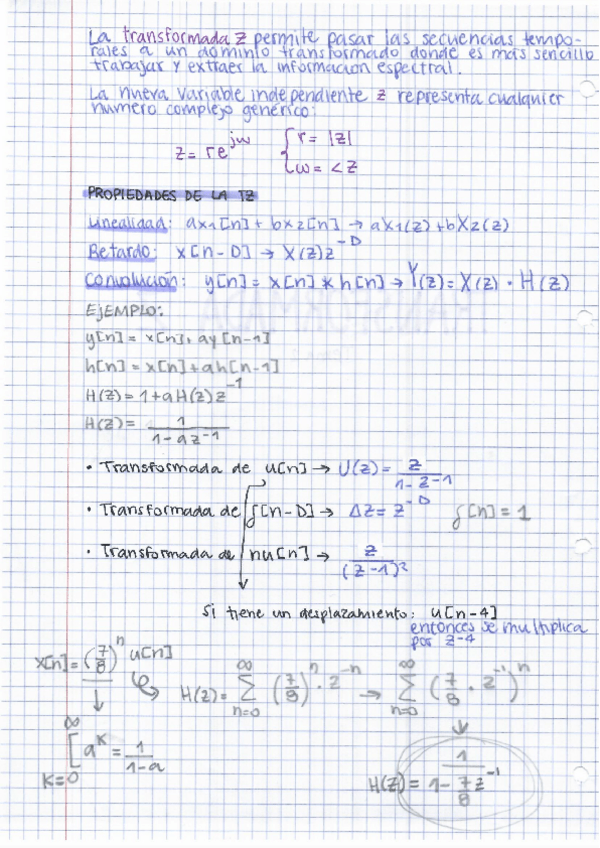 La transformada Z permite pasar las secuencias tempo-
rales a un dominio transformado donde es más sencillo
trabajar y extraer la información espectral.
La nueva variable independiente z representa cualquier
numero complejo generico:
z = re^{jω} { r = |z|
ω = <z
PROPIEDADES DE LA TZ
Linealidad: ax1[n] + bx2[n] → aX1(z) + bX2(z)
Retardo: x[n-D] → X(z)z^{-D}
Convolución: y[n] = x[n] * h[n] → Y(z) = X(z) · H(z)
EJEMPLO:
y[n] = x[n] + ay[n-1]
h[n] = x[n] + ah[n-1]
H(z) = 1 + aH(z)z^{-1}
H(z) = 1 / (1 - az^{-1})
• Transformada de u[n] → U(z) = z / (1 - z^{-1})
• Transformada de ʃ[n-D] → Δz = z^{-D} ʃ[n] = 1
• Transformada de nu[n] → z / (z-1)²
Si tiene un desplazamiento: u[n-4]
entonces se multiplica
por z^{-4}
x[n] = (7/8)^n u[n] H(z) = ∑_{n=0}^{∞} (7/8)^n · z^{-n} → ∑_{n=0}^{∞} (7/8 · z^{-1})^n
∑_{k=0}^{∞} a^k = 1 / (1-a) H(z) = 1 / (1 - 7/8 z^{-1})